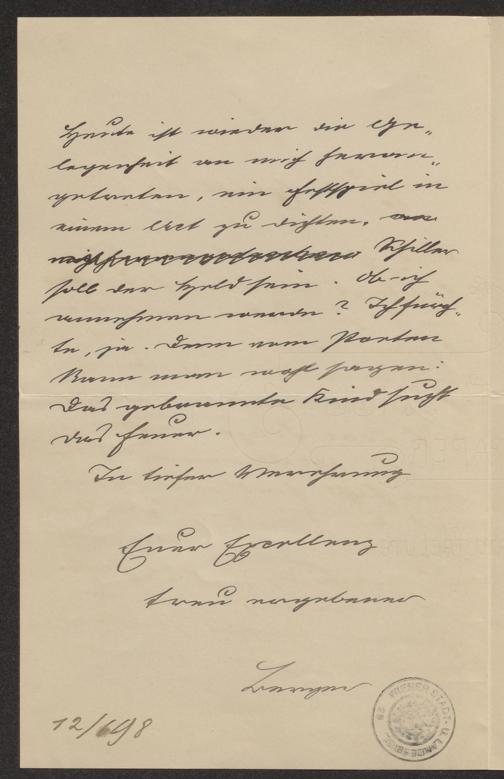 Heute ist wieder die Ge-
legenheit an mich heran-
getreten, ein Festspiel in
einem Act zu dichten. an
mich heranzutreten Schiller
soll der Held sein. Ob ich
annehmen werde? Ich fürch-
te, ja. Denn vom Poeten
kann man wohl sagen:
Das gebrannte Kind sucht
das Feuer.
In tiefer Verehrung
Euer Excellenz
treu ergebener
Berger
12/698
WIENER STADT- U. LANDESBIBL.
29